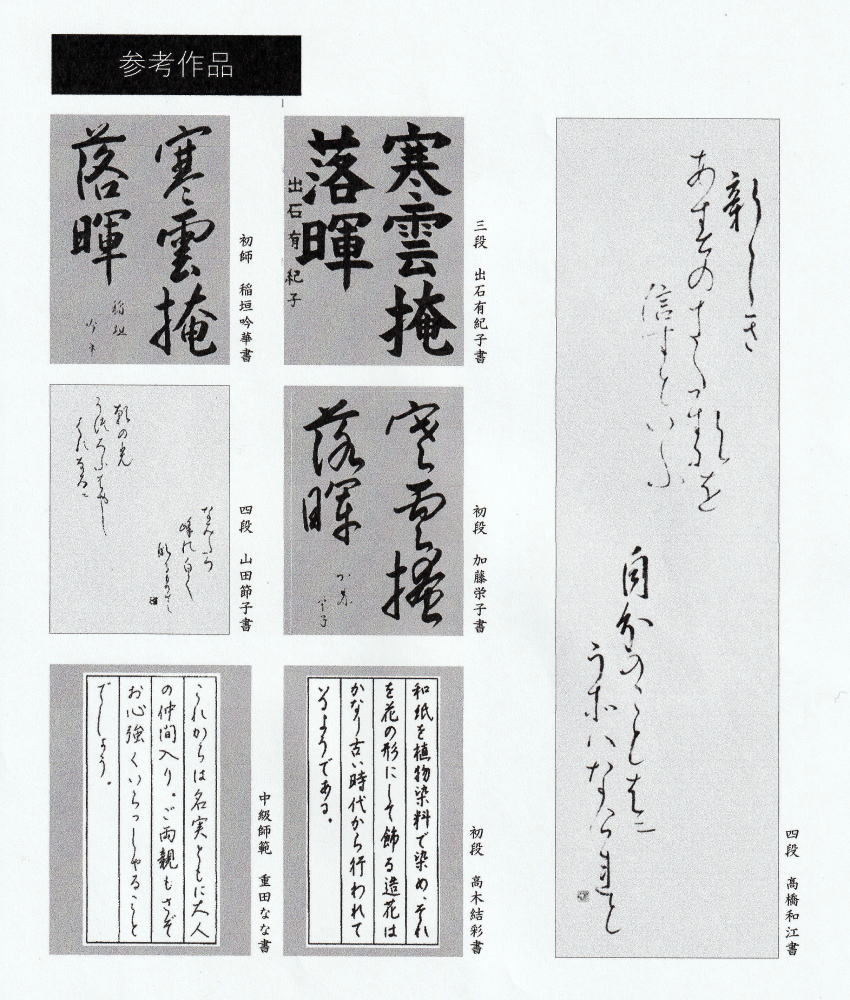 参考作品
新しき
あすのきたるを
信すといふ
自分のことはに
うそはなけれと
四段 高橋和江書
寒雲掩
落暉
出石有紀子
三段 出石有紀子書
寒雲掩
落暉
稲垣
初師 稲垣吟華書
寒雲掩
落暉
初段 加藤栄子書
朝の光
四段 山田節子書
和紙を植物染料で染め、それ
を花の形にして飾る造花は
かなり古い時代から行われて
いるようである。
初段 高木結彩書
これからは名実ともに大人
の仲間入り。ご両親もさぞ
お心強くいらっしゃること
でしょう。
中級師範 重田なな書